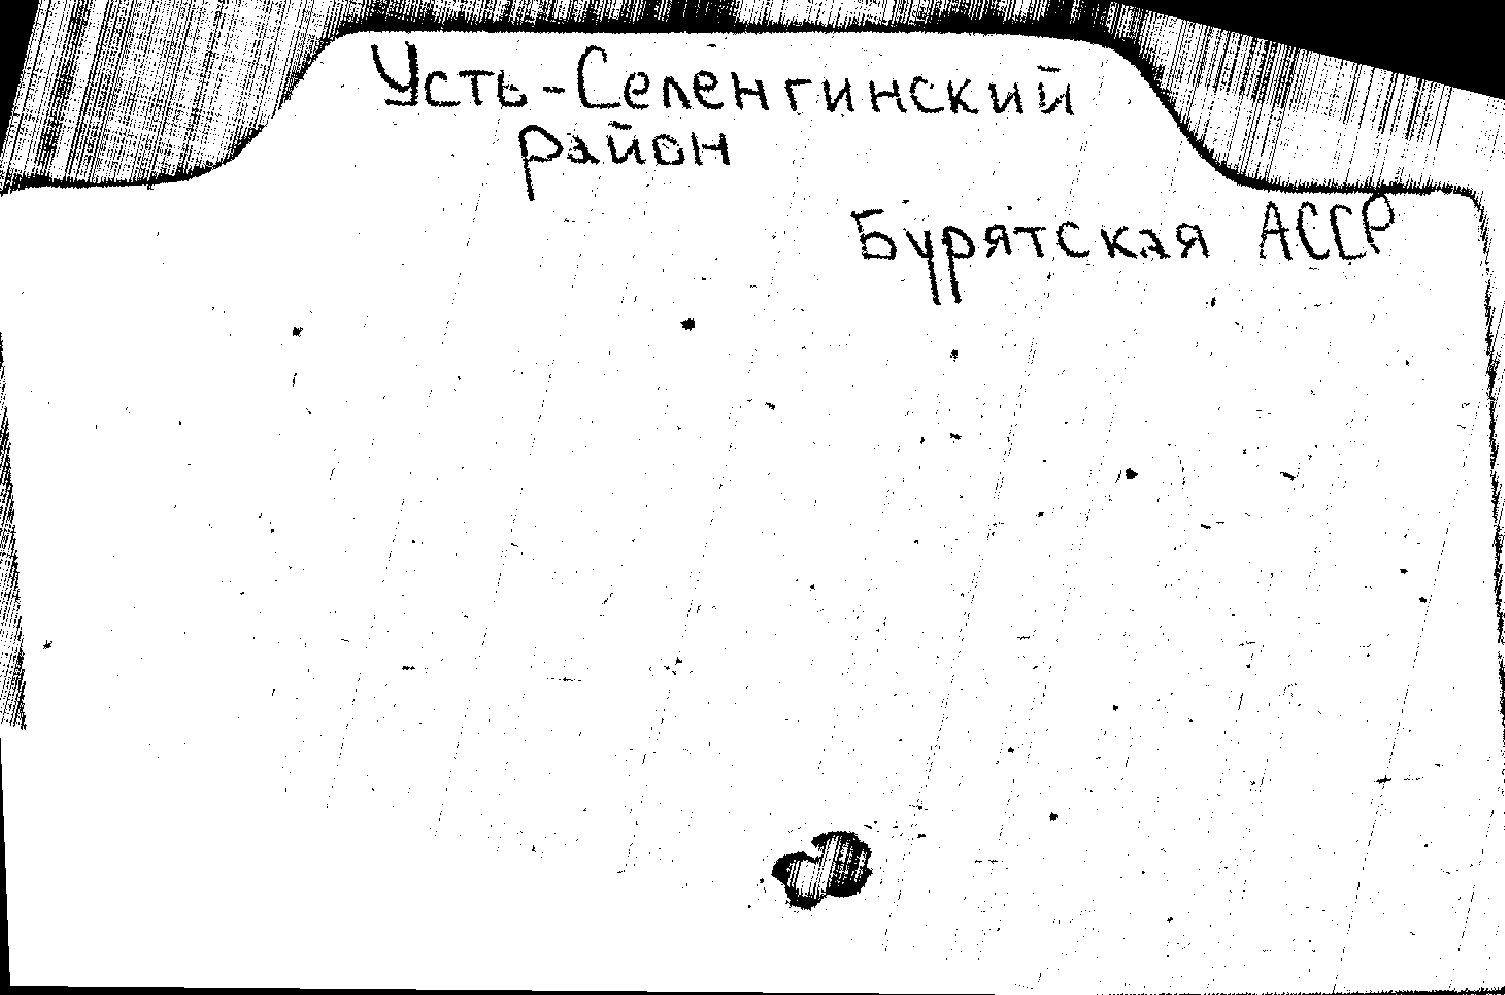 Усть-Селенгинский
район
Бурятская АССР